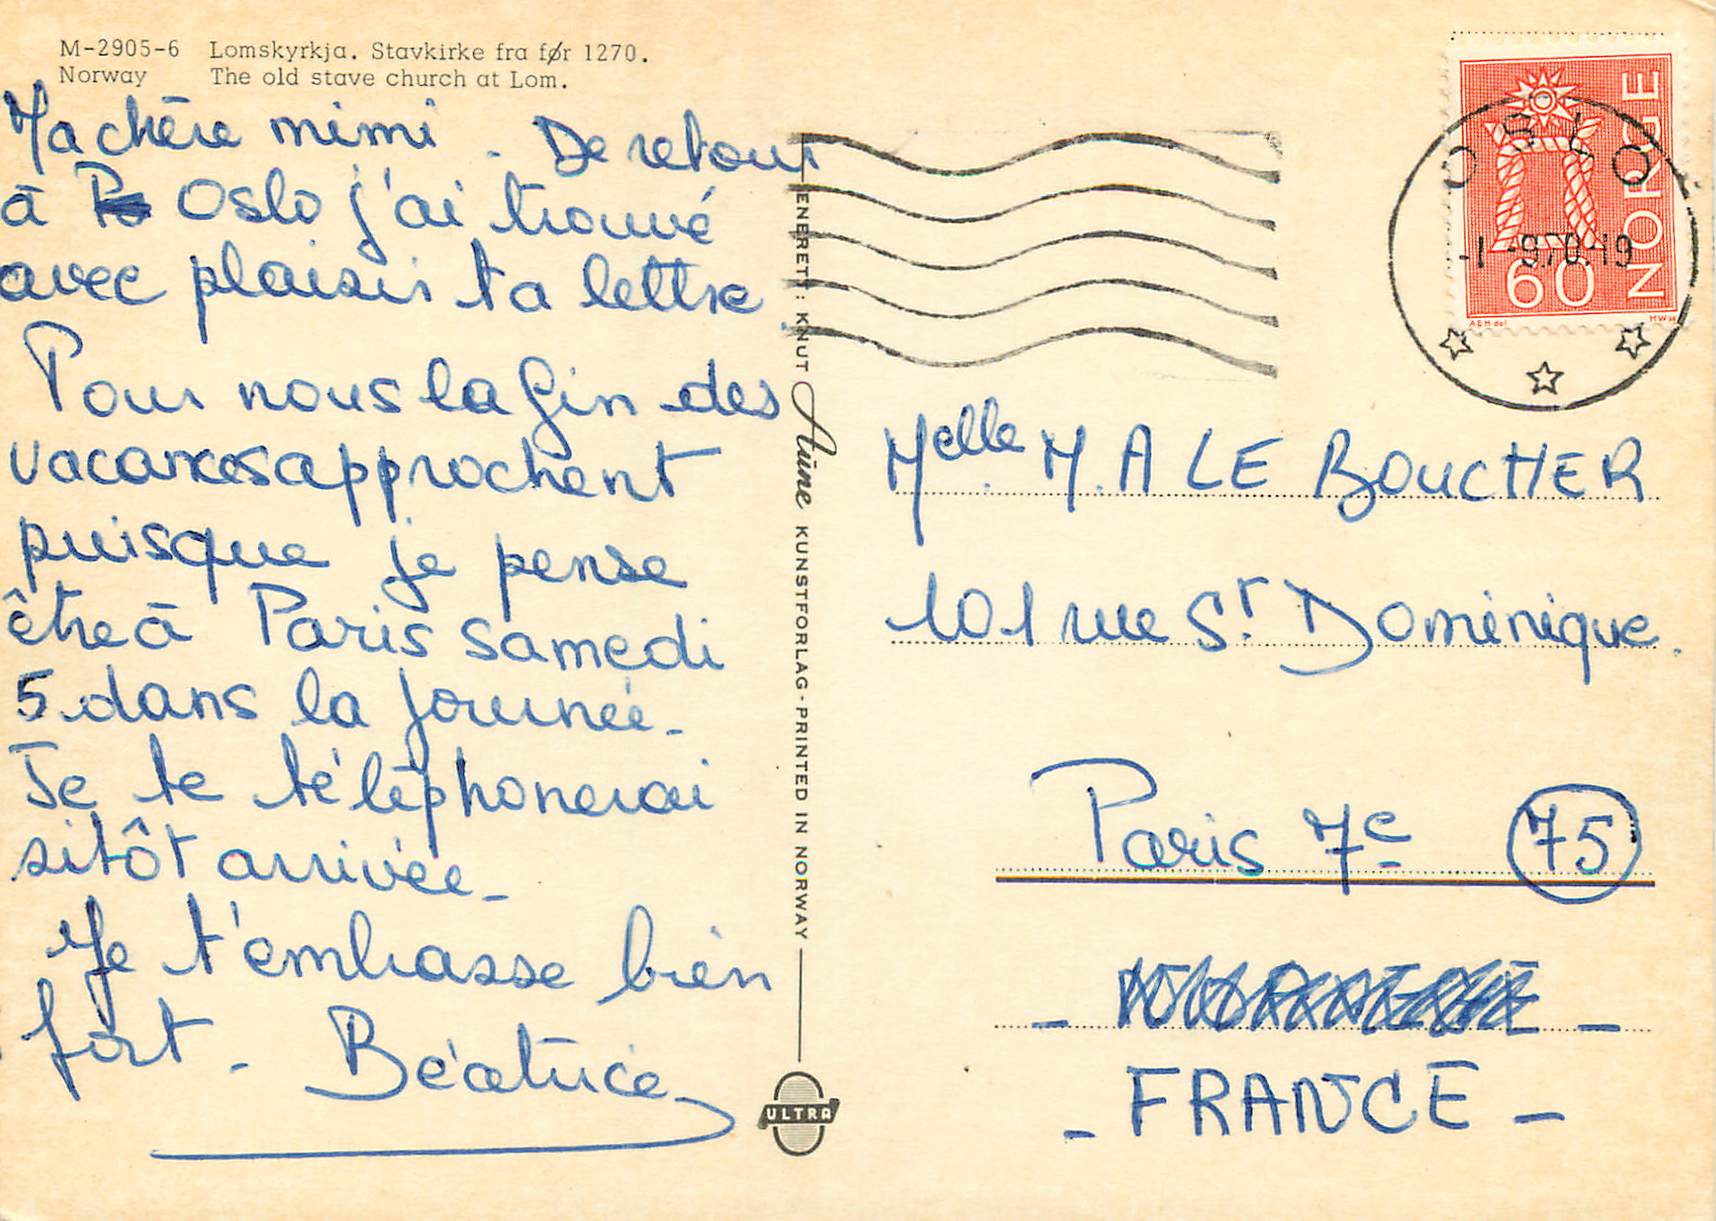 M-2905-6 Lomskyrkja. Stavkirke fra før 1270.
Norway The old stave church at Lom.
Ma chère mimi. De retour
à Oslo j'ai trouvé
avec plaisir ta lettre
Pour nous la fin des
vacances approchent
puisque je pense
être à Paris samedi
5 dans la journée.
Je te téléphonerai
sitôt arrivée.
Je t'embrasse bien
fort. Béatrice
ENERETT: KNUT Aune KUNSTFORLAG · PRINTED IN NORWAY
ULTRA
OSLO
-1-9.70.-19
NORGE
60
Melle. M. A LE BOUCHER
101 rue St. Dominique.
Paris 7e 75
- FRANCE -